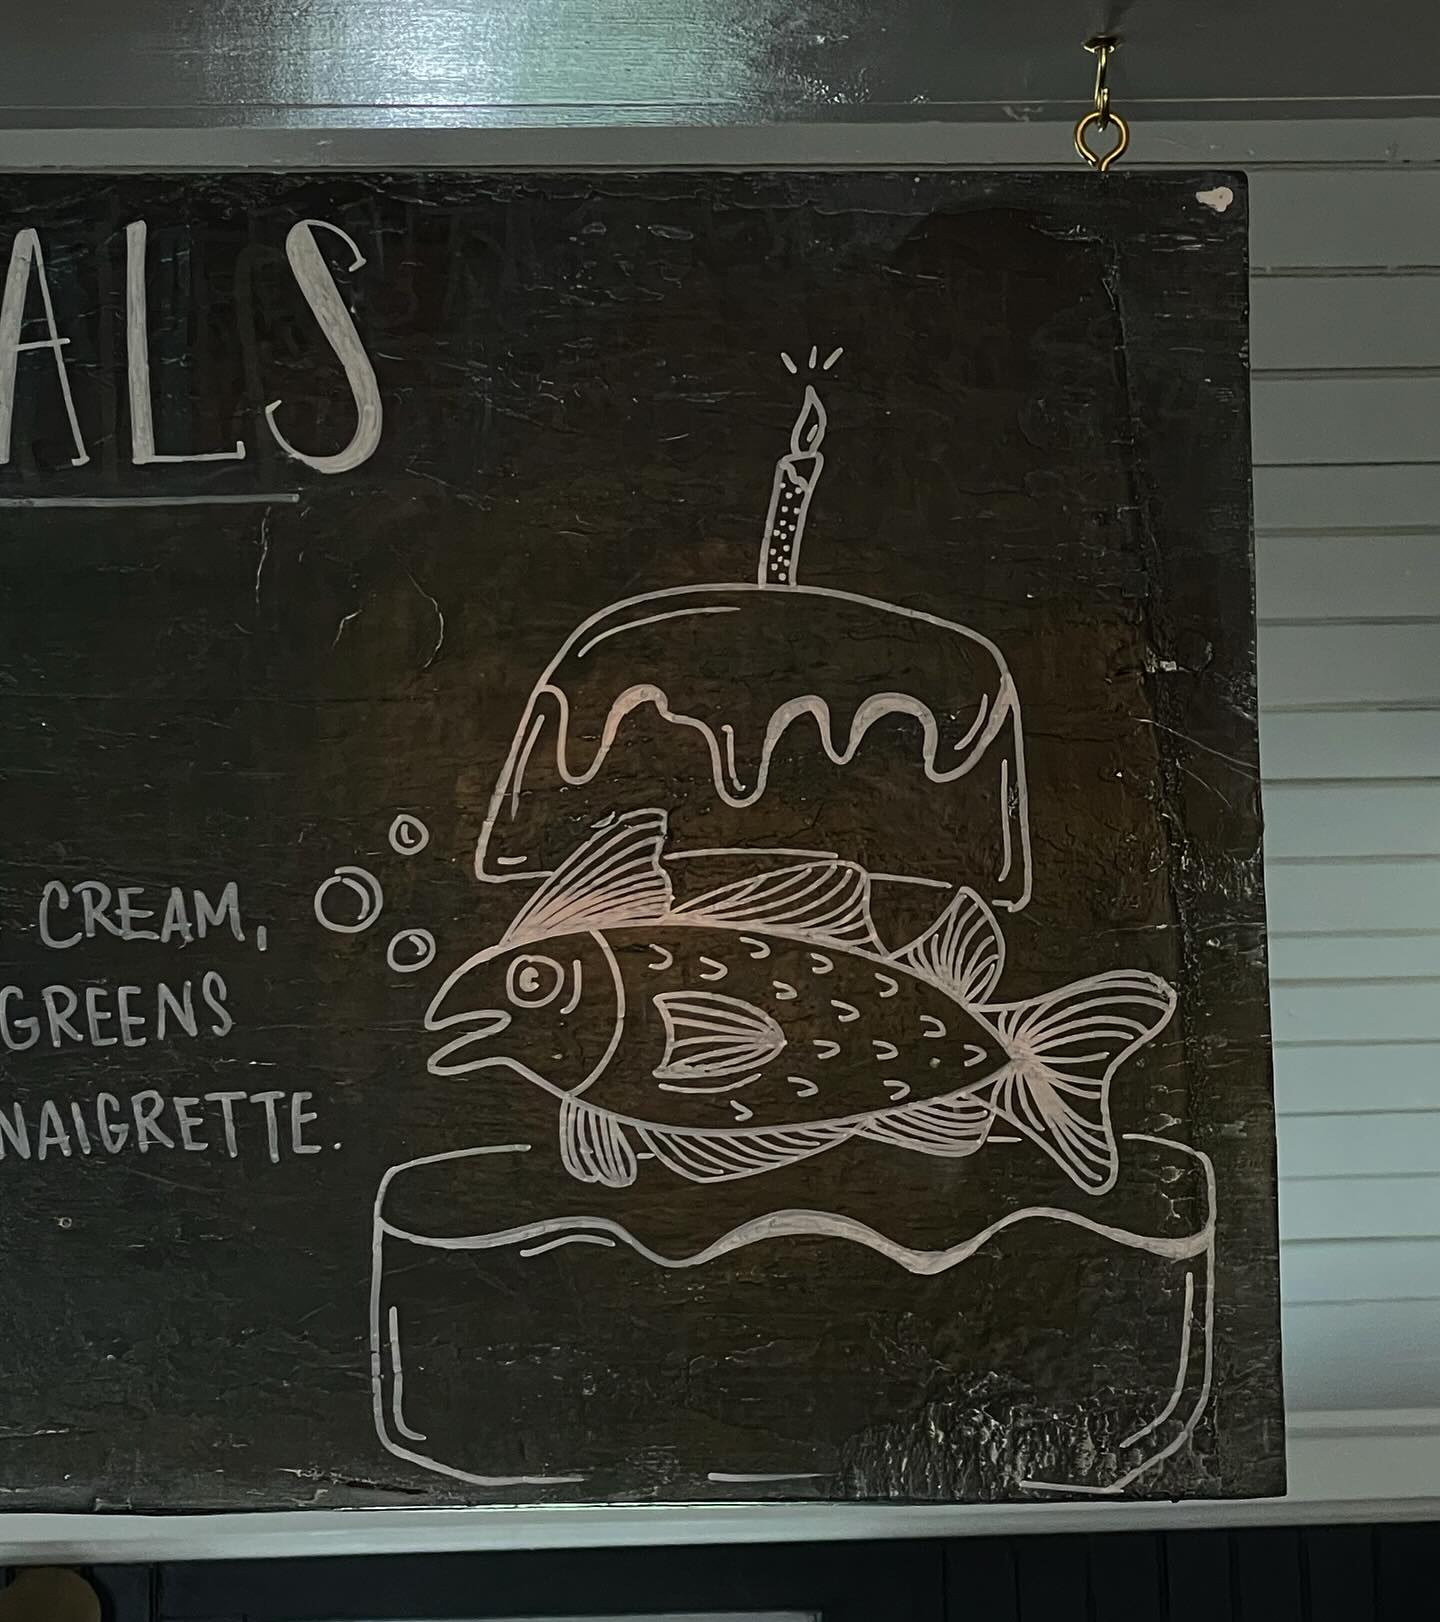 ALS
CREAM,
GREENS
NAIGRETTE.